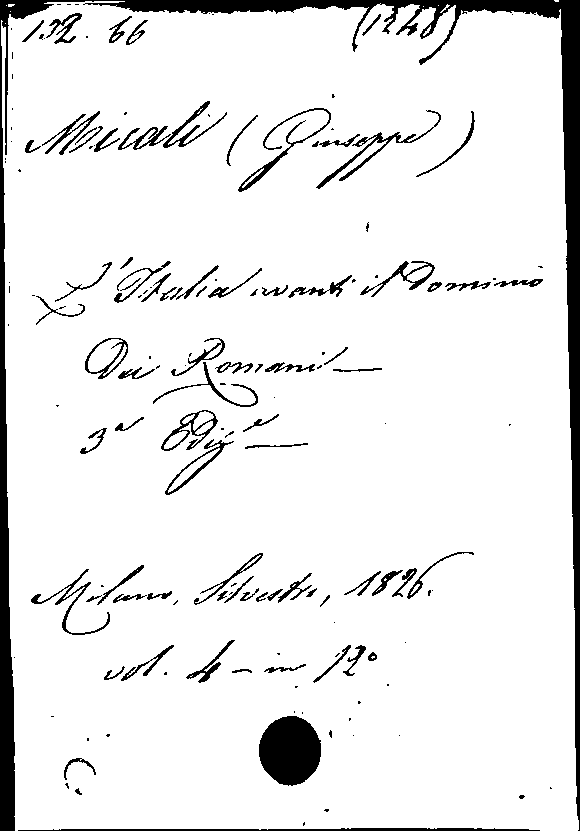 132. 66 (1248)
Micali (Giuseppe)
L'Italia avanti il Dominio
Dei Romani —
3ª Ediz.e —
Milano, Silvestri, 1826.
vol. 4 — in 12º
C.